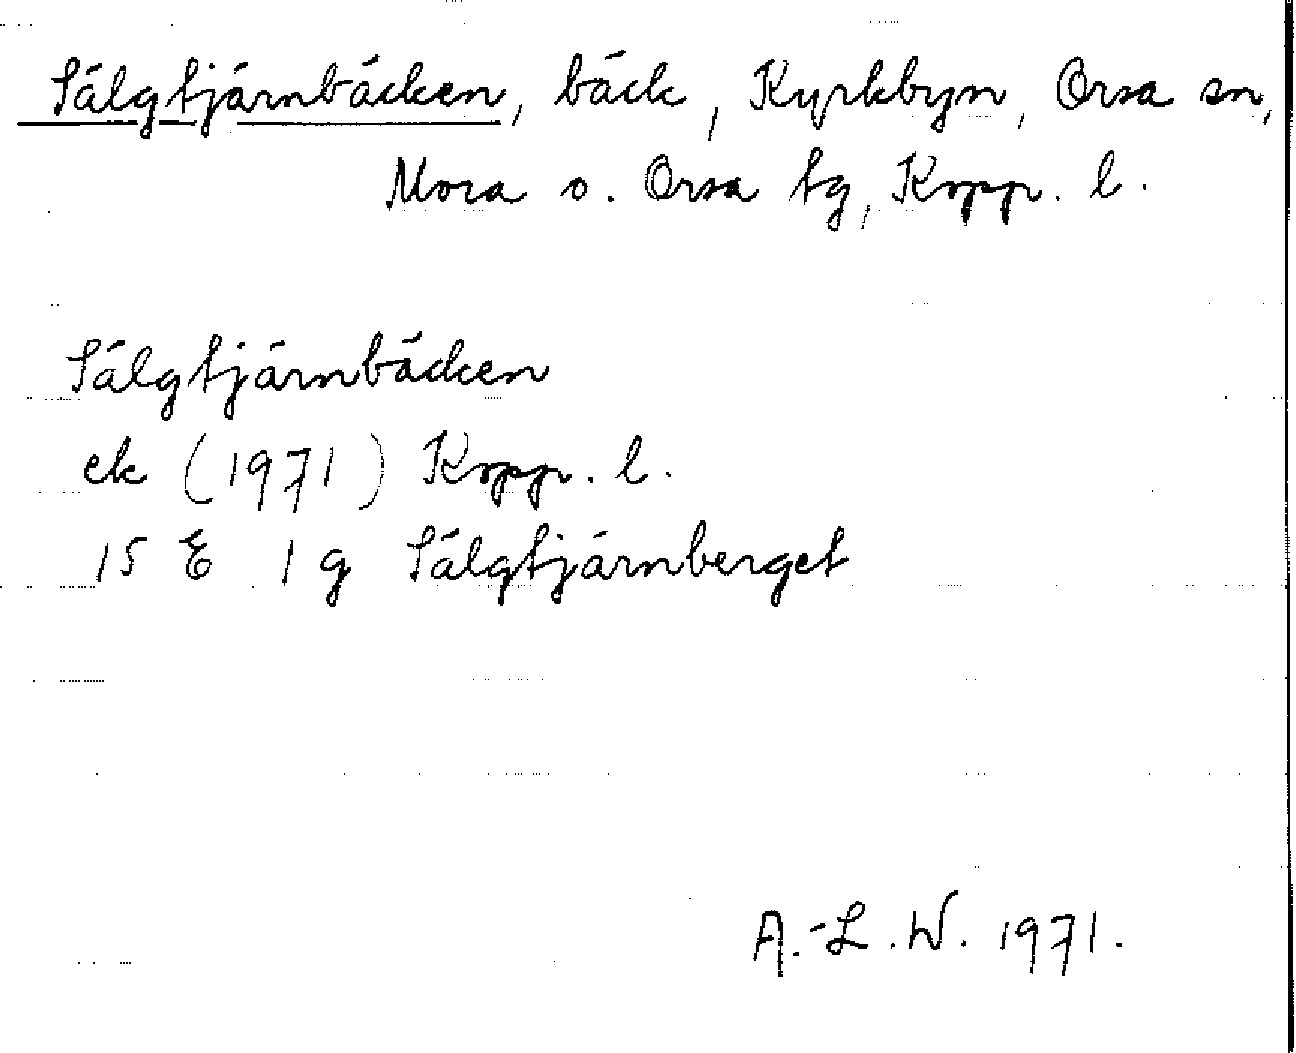 Sälgtjärnbäcken, bäck, Kyrkbyn, Orsa sn,
Mora o. Orsa tg, Kopp. l.
Sälgtjärnbäcken
ek (1971) Kopp. l.
15 E 1 g Sälgtjärnberget
A.-L.W. 1971.